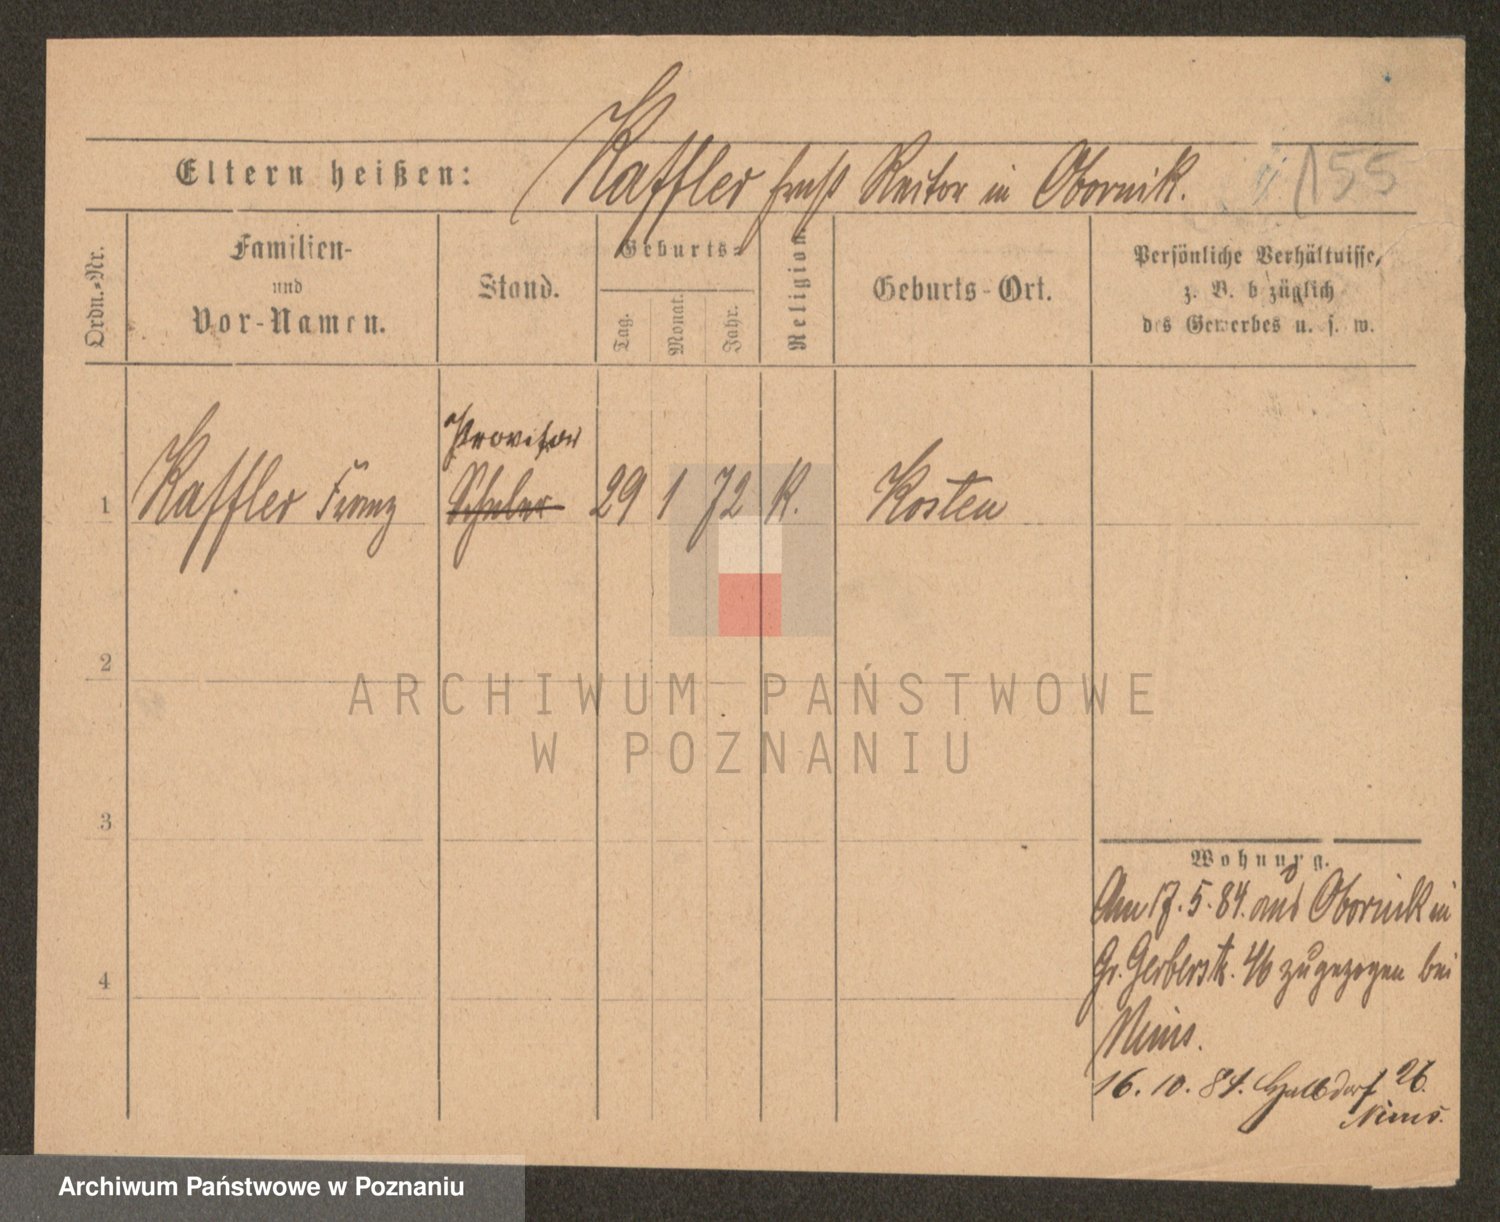 Eltern heißen: Kaffler Ernst Rector in Obornik. 155
Ordn.-Nr.
Familien-
und
Vor-Namen.
Stand.
Geburts-
Tag.
Monat.
Jahr.
Religion.
Geburts-Ort.
Persönliche Verhältnisse,
z. B. b züglich
des Gewerbes u. s. w.
Provisor
1 Kaffler Franz Schuler 29 1 72 K. Kosten
2
3
4
Wohnung.
Am 17. 5. 84. aus Obornik in
Gr. Gerberstr. 46 zugezogen bei
Nims.
16. 10. 84. Halbdorf 26.
Nims.
ARCHIWUM PAŃSTWOWE
W POZNANIU
Archiwum Państwowe w Poznaniu